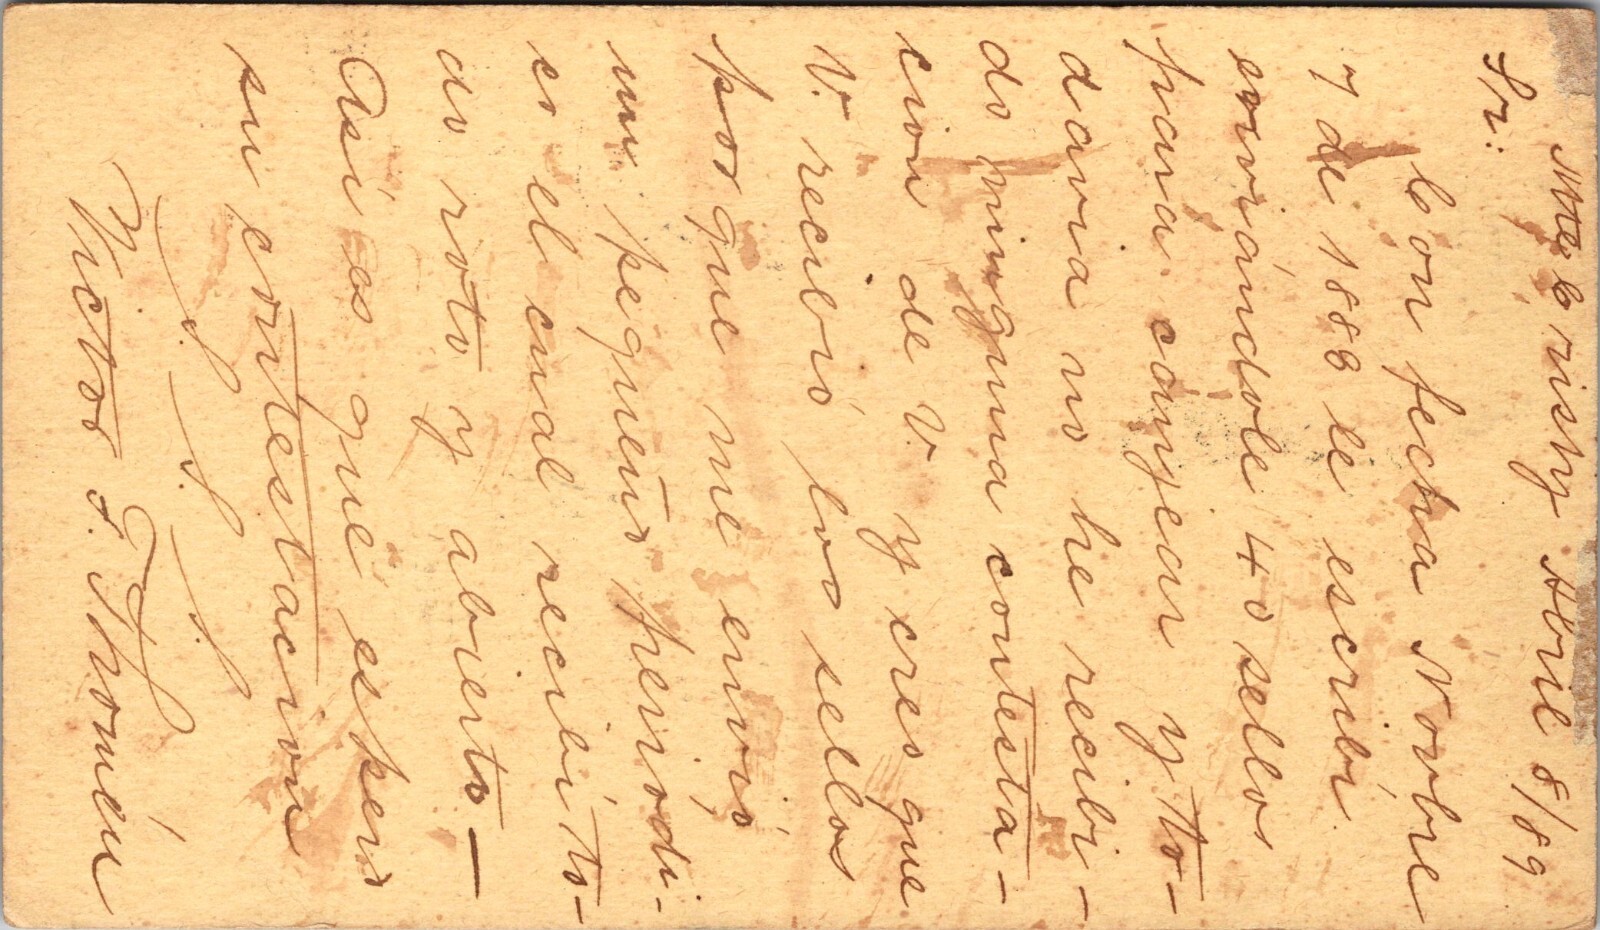 Mte Cristy Abril 8/89
Sr:
Con fecha Novbre
7 de 1888 le escribí
enviándole 40 sellos
para canjear y to-
davia no he recibi-
do ninguna contesta-
cion de V. y creo que
V. recibió los sellos
porque me envió
un pequeño periodi-
co el cual recibí to-
do roto y abierto—
Así es que espero
su contestacion
S. S. S.
Victor F. Thomén